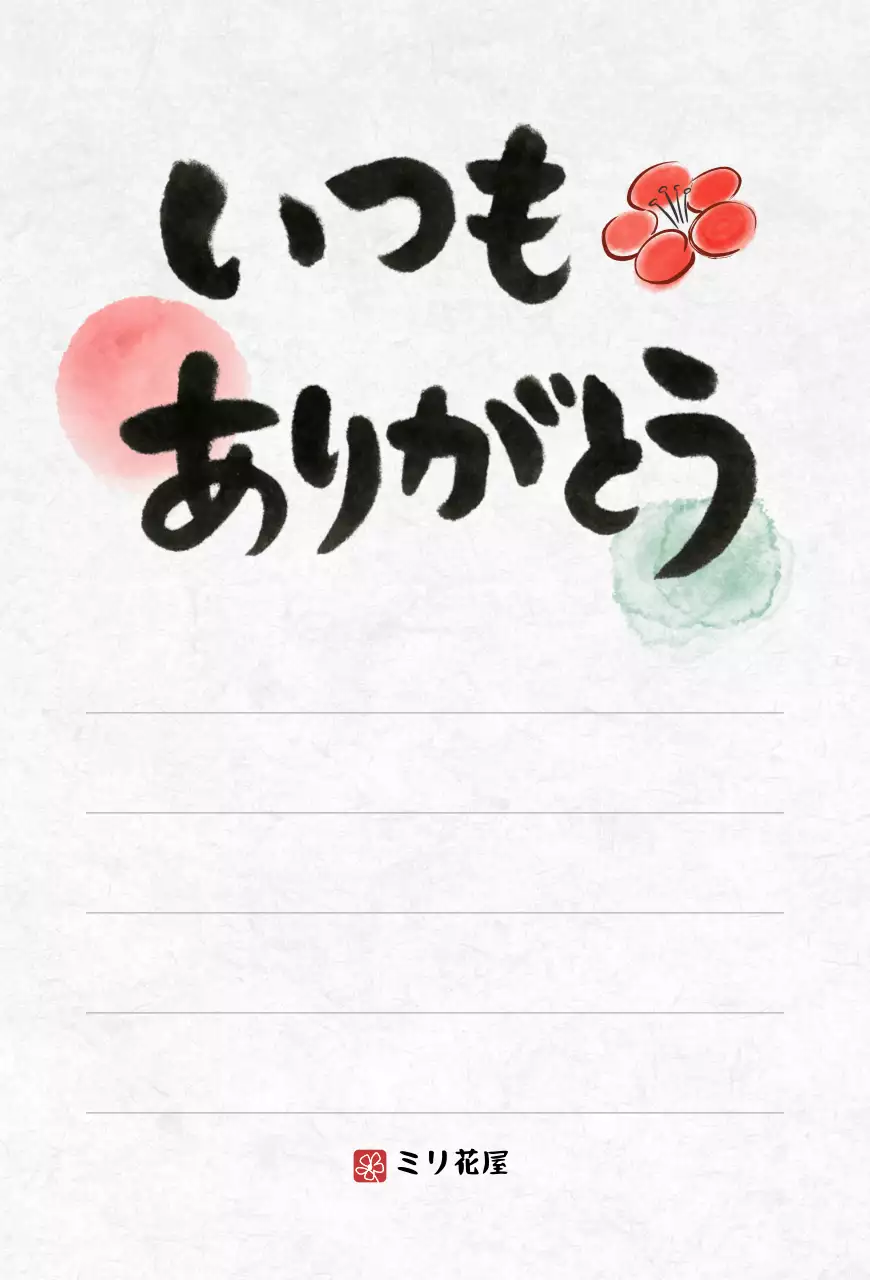 いつも
ありがとう
ミリ花屋